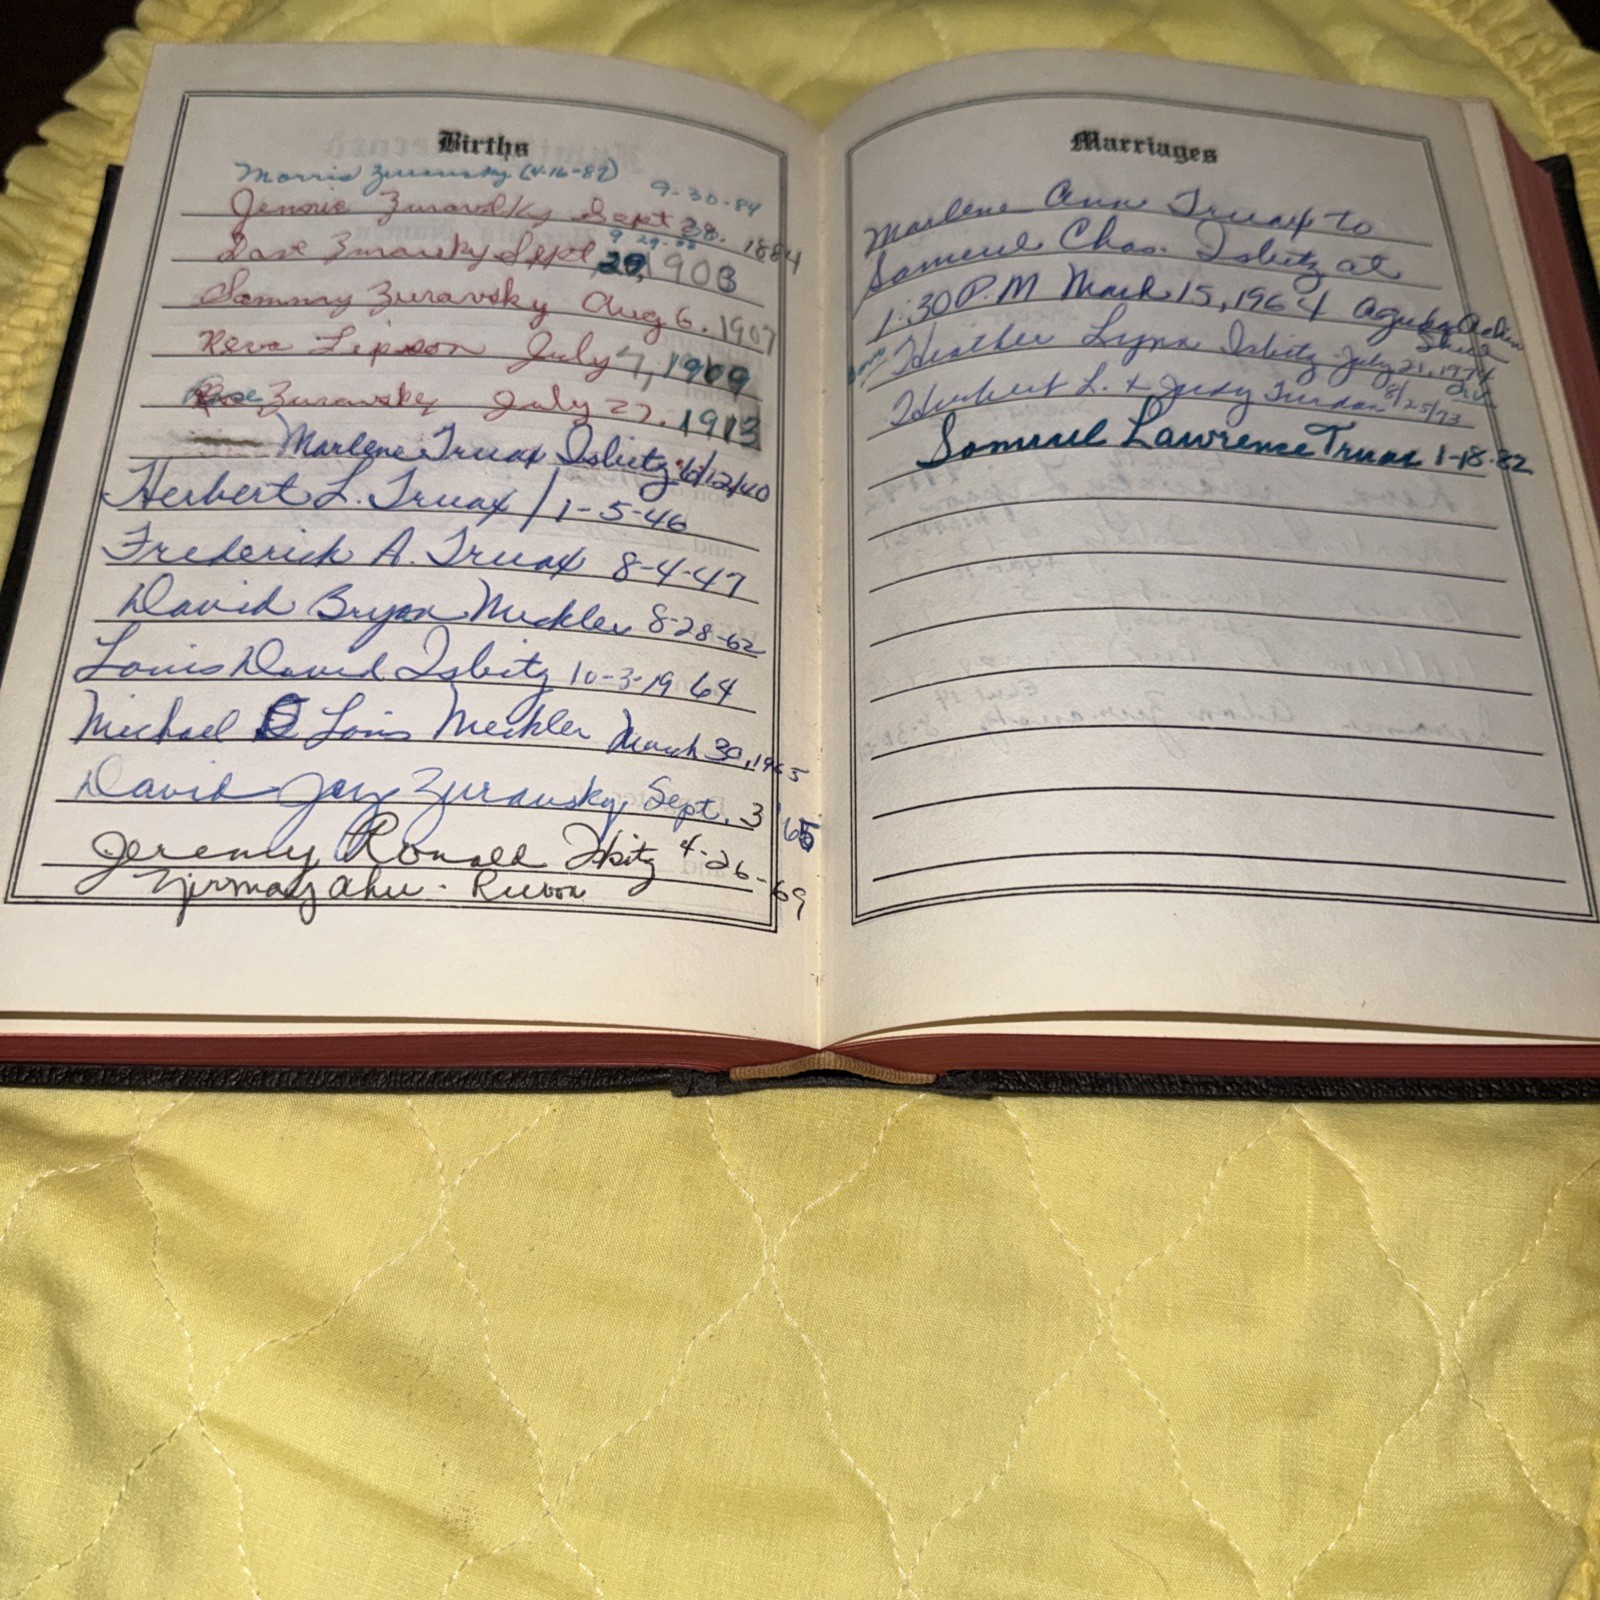 Births
Morris Zuravsky (4-16-87)
9-30-84
Jennie Zuravsky Sept 28. 1884
9-29-
Dave Zuravsky Sept 1903
Sammy Zuravsky Aug 6. 1907
Reva Lipson July 7, 1909
Rose Zuravsky July 27. 1913
Marlene Truax Isbitz 6/12/40
Herbert L. Truax / 1-5-46
Frederick A. Truax 8-4-47
David Bryan Meckler 8-28-62
Louis David Isbitz 10-3-1964
Michael Louis Meckler March 30, 1965
David Jay Zuravsky Sept. 3 '65
Jeremy Ronald Isbitz 4-26-69
Yirmayahu - Ruvon
Marriages
Marlene Ann Truax to
Samuel Chas. Isbitz at
1:30 P.M March 15, 1964 Agudas Achim
Shul
Heather Lynn Isbitz July 21, 1974
Herbert L. + Judy 8/25/73
Samuel Lawrence Truax 1-18-82